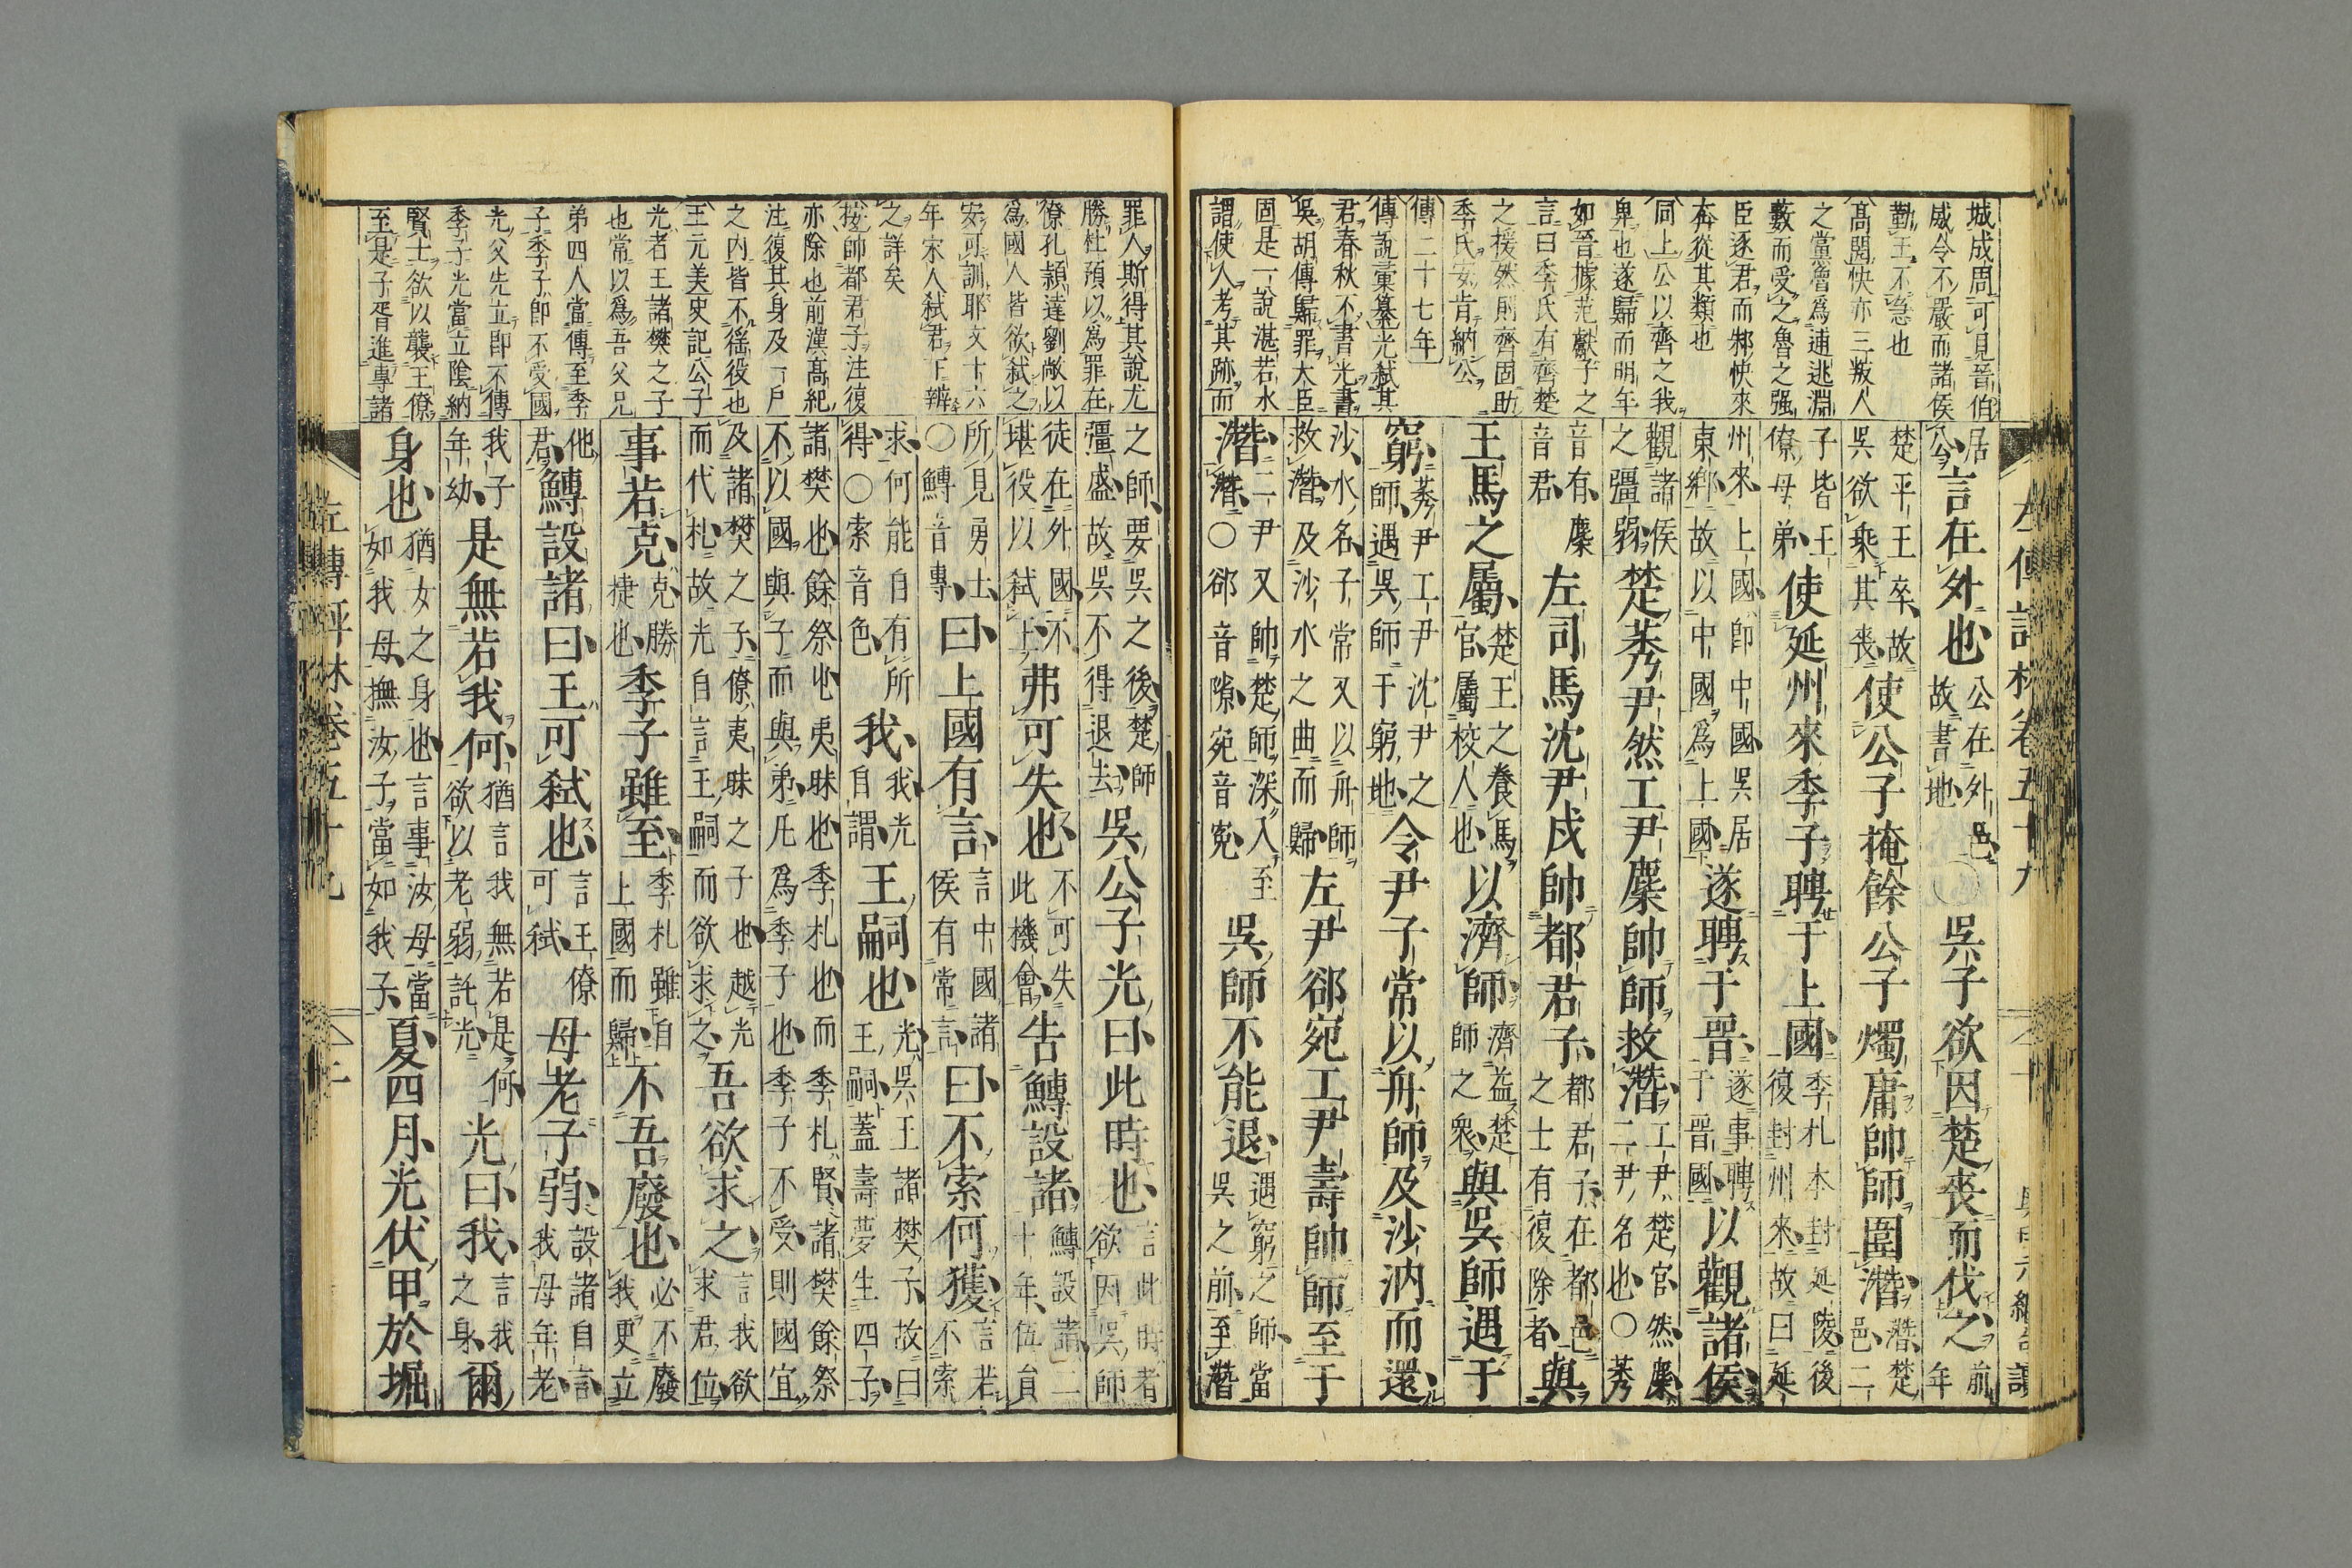 城成周可見晉伯
威令不嚴而諸侯
勤王不急也
高閌快亦三叛人
之黨魯爲逋逃淵
藪而受之魯之强
臣逐君而邾快來
奔從其類也
同上公以齊之我
卑也遂歸而明年
如晉據范獻子之
言曰季氏有齊楚
之援然則齊固助
季氏安肯納公
傳二十七年
傳說彙纂光弑其
君春秋不書光書
吳胡傳歸罪大臣
固是一說湛若水
謂使人考其跡而
居公言在外也公在外邑故書地吳子欲因楚喪而伐之前年
楚平王卒故吳欲乘其喪使公子掩餘公子燭庸帥師圍潛潛楚邑二
子皆王僚母弟使延州來季子聘于上國季札本封延陵後復封州來故曰延
州來上國卽中國吳居東鄕故以中國爲上國遂聘于晉遂事聘于晉國以觀諸侯
觀諸侯之彊弱楚莠尹然工尹麇帥師救潛工尹楚官然麇二尹名也○莠
音有麇音君左司馬沈尹戌帥都君子都君子在都邑之士有復除者與
王馬之屬楚王之養馬官屬校人也以濟師濟益楚師之衆與吳師遇于
窮莠尹工尹沈尹之師遇吳師于窮地令尹子常以舟師及沙汭而還
沙水名子常又以舟師救潛及沙水之曲而歸左尹郤宛工尹壽帥師至于
潛二尹又帥楚師深入至潛○郤音隙宛音寃吳師不能退遇窮之師當吳之前至潛
罪人斯得其說尤
勝杜預以爲罪在
僚孔穎達劉敞以
爲國人皆欲弑之
安可訓耶文十六
年宋人弑君下辨
之詳矣
按帥都君子注復
亦除也前漢高紀
注復其身及一戶
之內皆不徭役也
王元美史記公子
光者王諸樊之子
也常以爲吾父兄
弟四人當傳至季
子季子卽不受國
光父先立卽不傳
季子光當立陰納
賢士欲以襲王僚
至是子胥進專諸
之師要吳之後楚師彊盛故吳不得退去吳公子光曰此時也言此時者欲因吳師
徒在外國不堪役以弑上弗可失也不可失此機會告鱄設諸鱄設諸二十年伍員
所見勇士○鱄音專曰上國有言言中國諸侯有常言曰不索何獲言若不索
求何能自有所得○索音色我我光自謂王嗣也光吳王諸樊子故曰王嗣蓋壽夢生四子
諸樊也餘祭也夷昧也季札也而季札賢諸樊餘祭不以國與子而與弟凡爲季子也季子不受則國宜
及諸樊之子僚夷昧之子也越光而代札故光自言王嗣而欲求之吾欲求之言我欲求君位
事若克克勝捷也季子雖至季札雖自上國而歸不吾廢也必不廢我更立
他君鱄設諸曰王可弑也言王僚可弑母老子弱設諸自言我母年老
我子年幼是無若我何猶言我無若是何欲以老弱託光光曰我言我之身爾
身也猶女之身也言事汝母當如我母撫汝子當如我子夏四月光伏甲於堀
左傳評林卷五十九